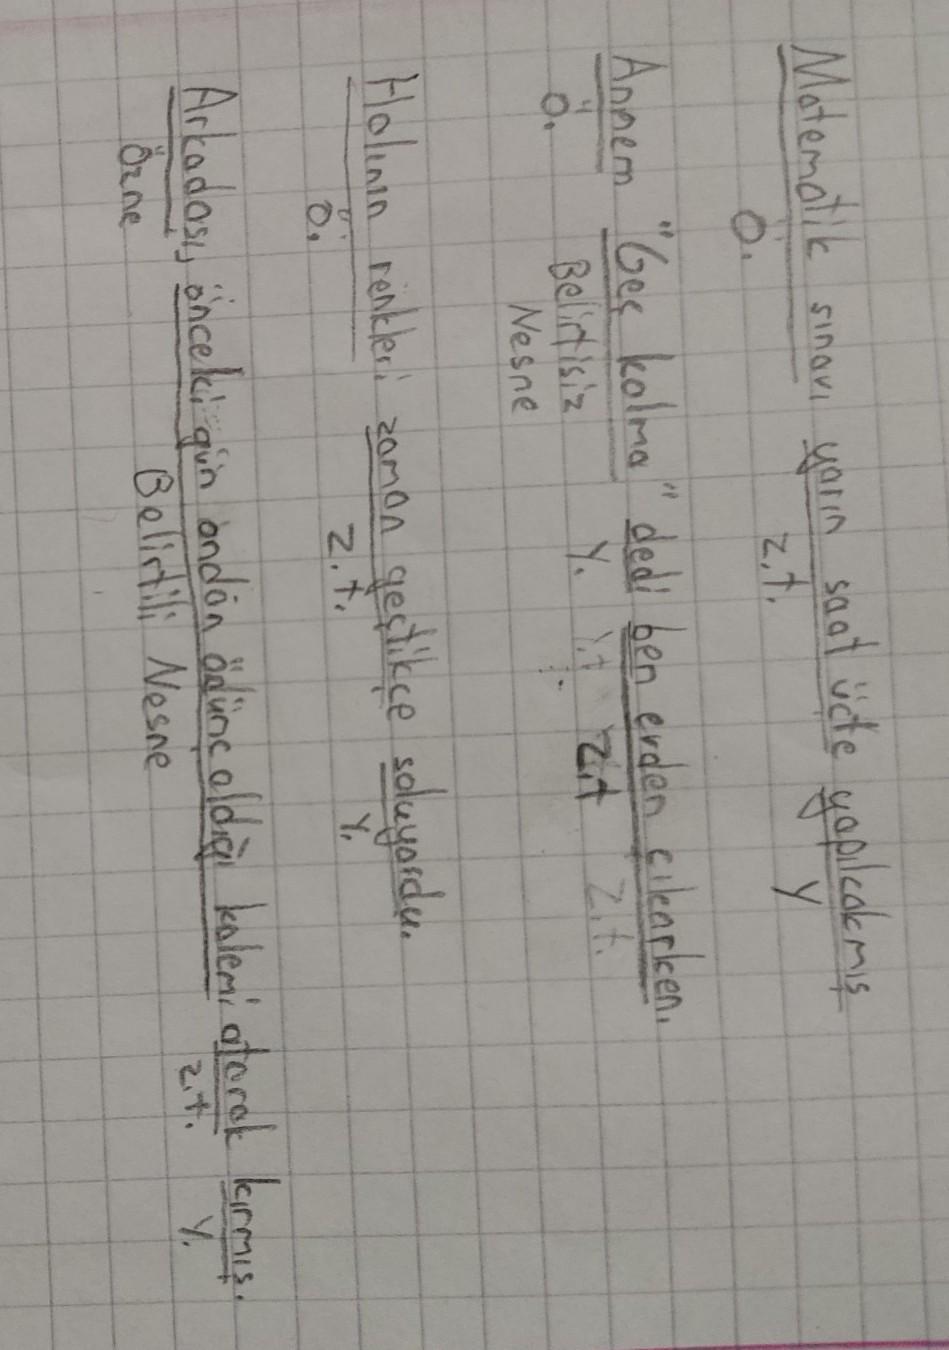 Matematik sınavı yarın saat üçte yapılcakmış
Ö. z.t. Y
Annem "Geç kalma" dedi ben evden çıkarken.
Ö. Belirtisiz Y. z.t z.t.
Nesne
Halının renkleri zaman geçtikçe soluyordu.
Ö. z.t. Y.
Arkadaşı, önceki gün ondan ödünç aldığı kalemi atarak kırmış.
Özne Belirtili Nesne z.t. Y.